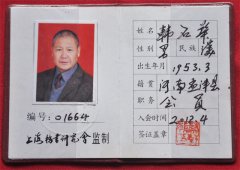 编号:01664
上海楹书研究会监制
姓名 韩石萍
性别 男 民族 汉
出生年月 1953.3
籍贯 河南孟津县
职务 会员
入会时间 2012.4
签证盖章